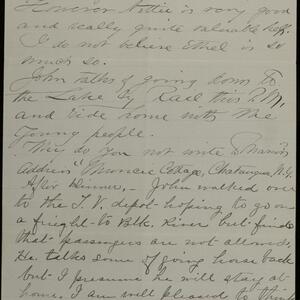 Eleanor Nettie is very good
and really quite valuable help.
I do not believe Ethel is so
much so.
John talks of going down to
the Lake by Rail this P.M.
and ride some with the
young people.
Why do you not write to
Address "Monroe Cottage, Chatauqua, N.Y.
After Dinner, - John walked over
to the J.V. depot hoping to go on
a freight - to Blk. River but finds
that passengers are not allowed.
He talks some of going horse back
but I presume he will stay at
home. I am will pleased to